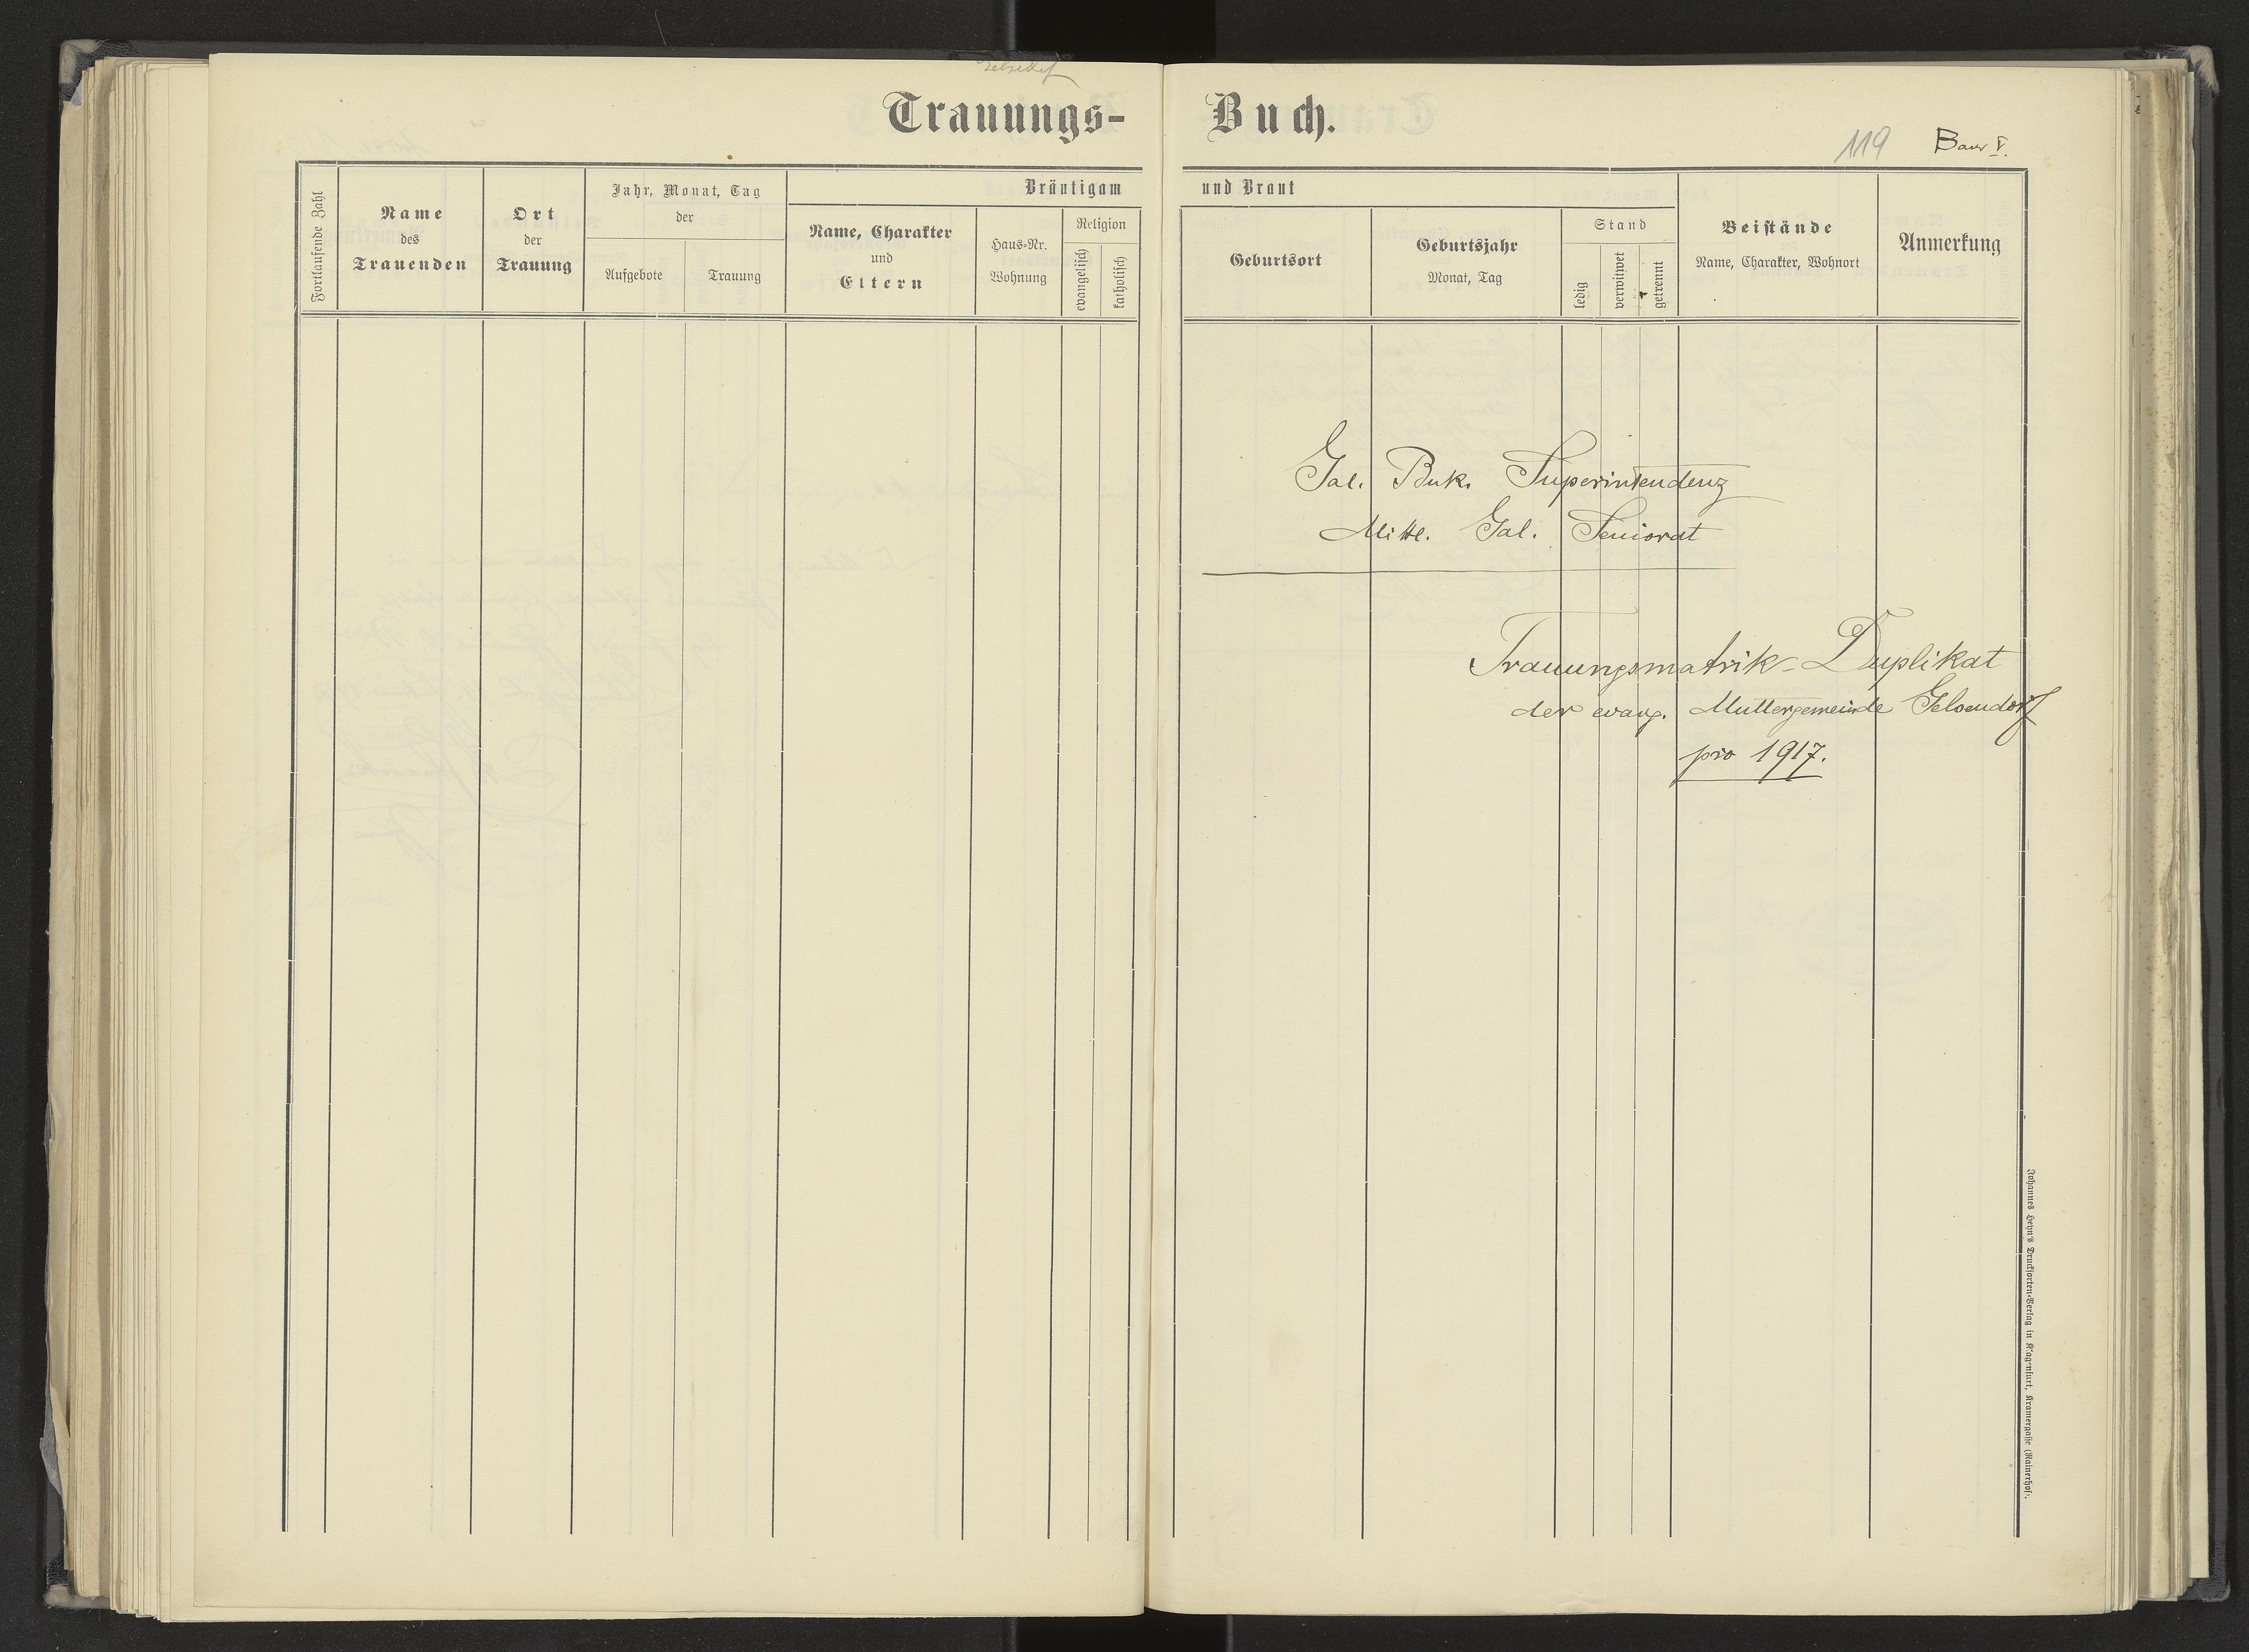 Trauungs- Buch.
119 Baur V.
Fortlaufende Zahl
Name
des
Trauenden
Ort
der
Trauung
Jahr, Monat, Tag
der
Aufgebote
Trauung
Bräutigam und Braut
Name, Charakter
und
Eltern
Haus-Nr.
Wohnung
Religion
evangelisch
katholisch
Geburtsort
Geburtsjahr
Monat, Tag
Stand
ledig
verwitwet
getrennt
Beistände
Name, Charakter, Wohnort
Anmerkung
Gal. Buk. Superintendenz
Mittl. Gal. Seniorat
Trauungsmatrik-Duplikat
der evang. Muttergemeinde Gelsendorf
pro 1917.
Johannes Heyn's Drucksorten-Verlag in Klagenfurt, Kramergasse (Rainerhof).